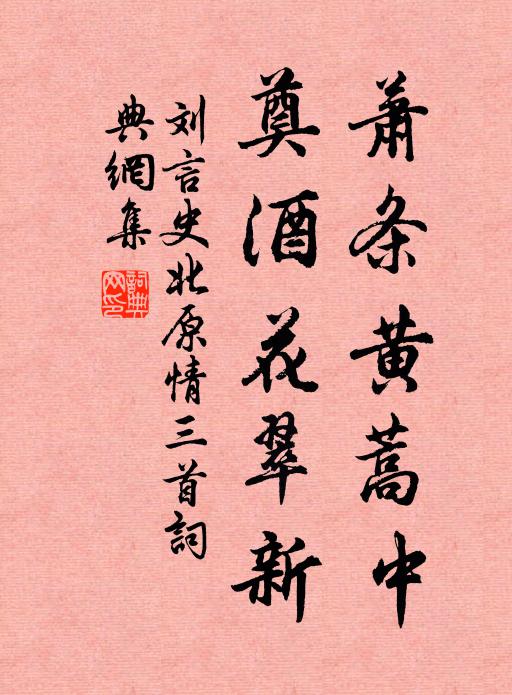 萧条黄蒿中
奠酒花翠新
刘言史北原情三首詞
典網集
詞典
网印